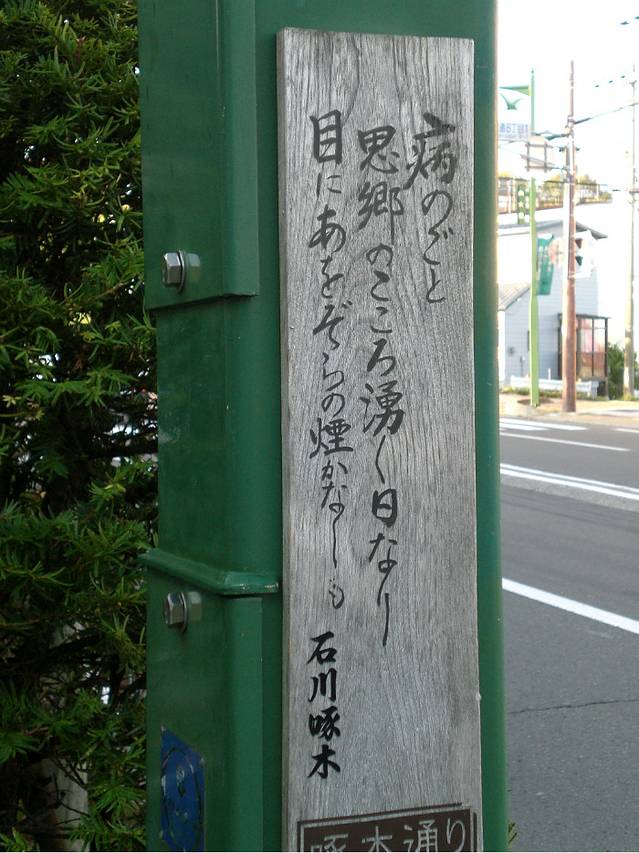 病のごと
思郷のこころ湧く日なり
目にあをぞらの煙かなしも
石川啄木
啄木通り